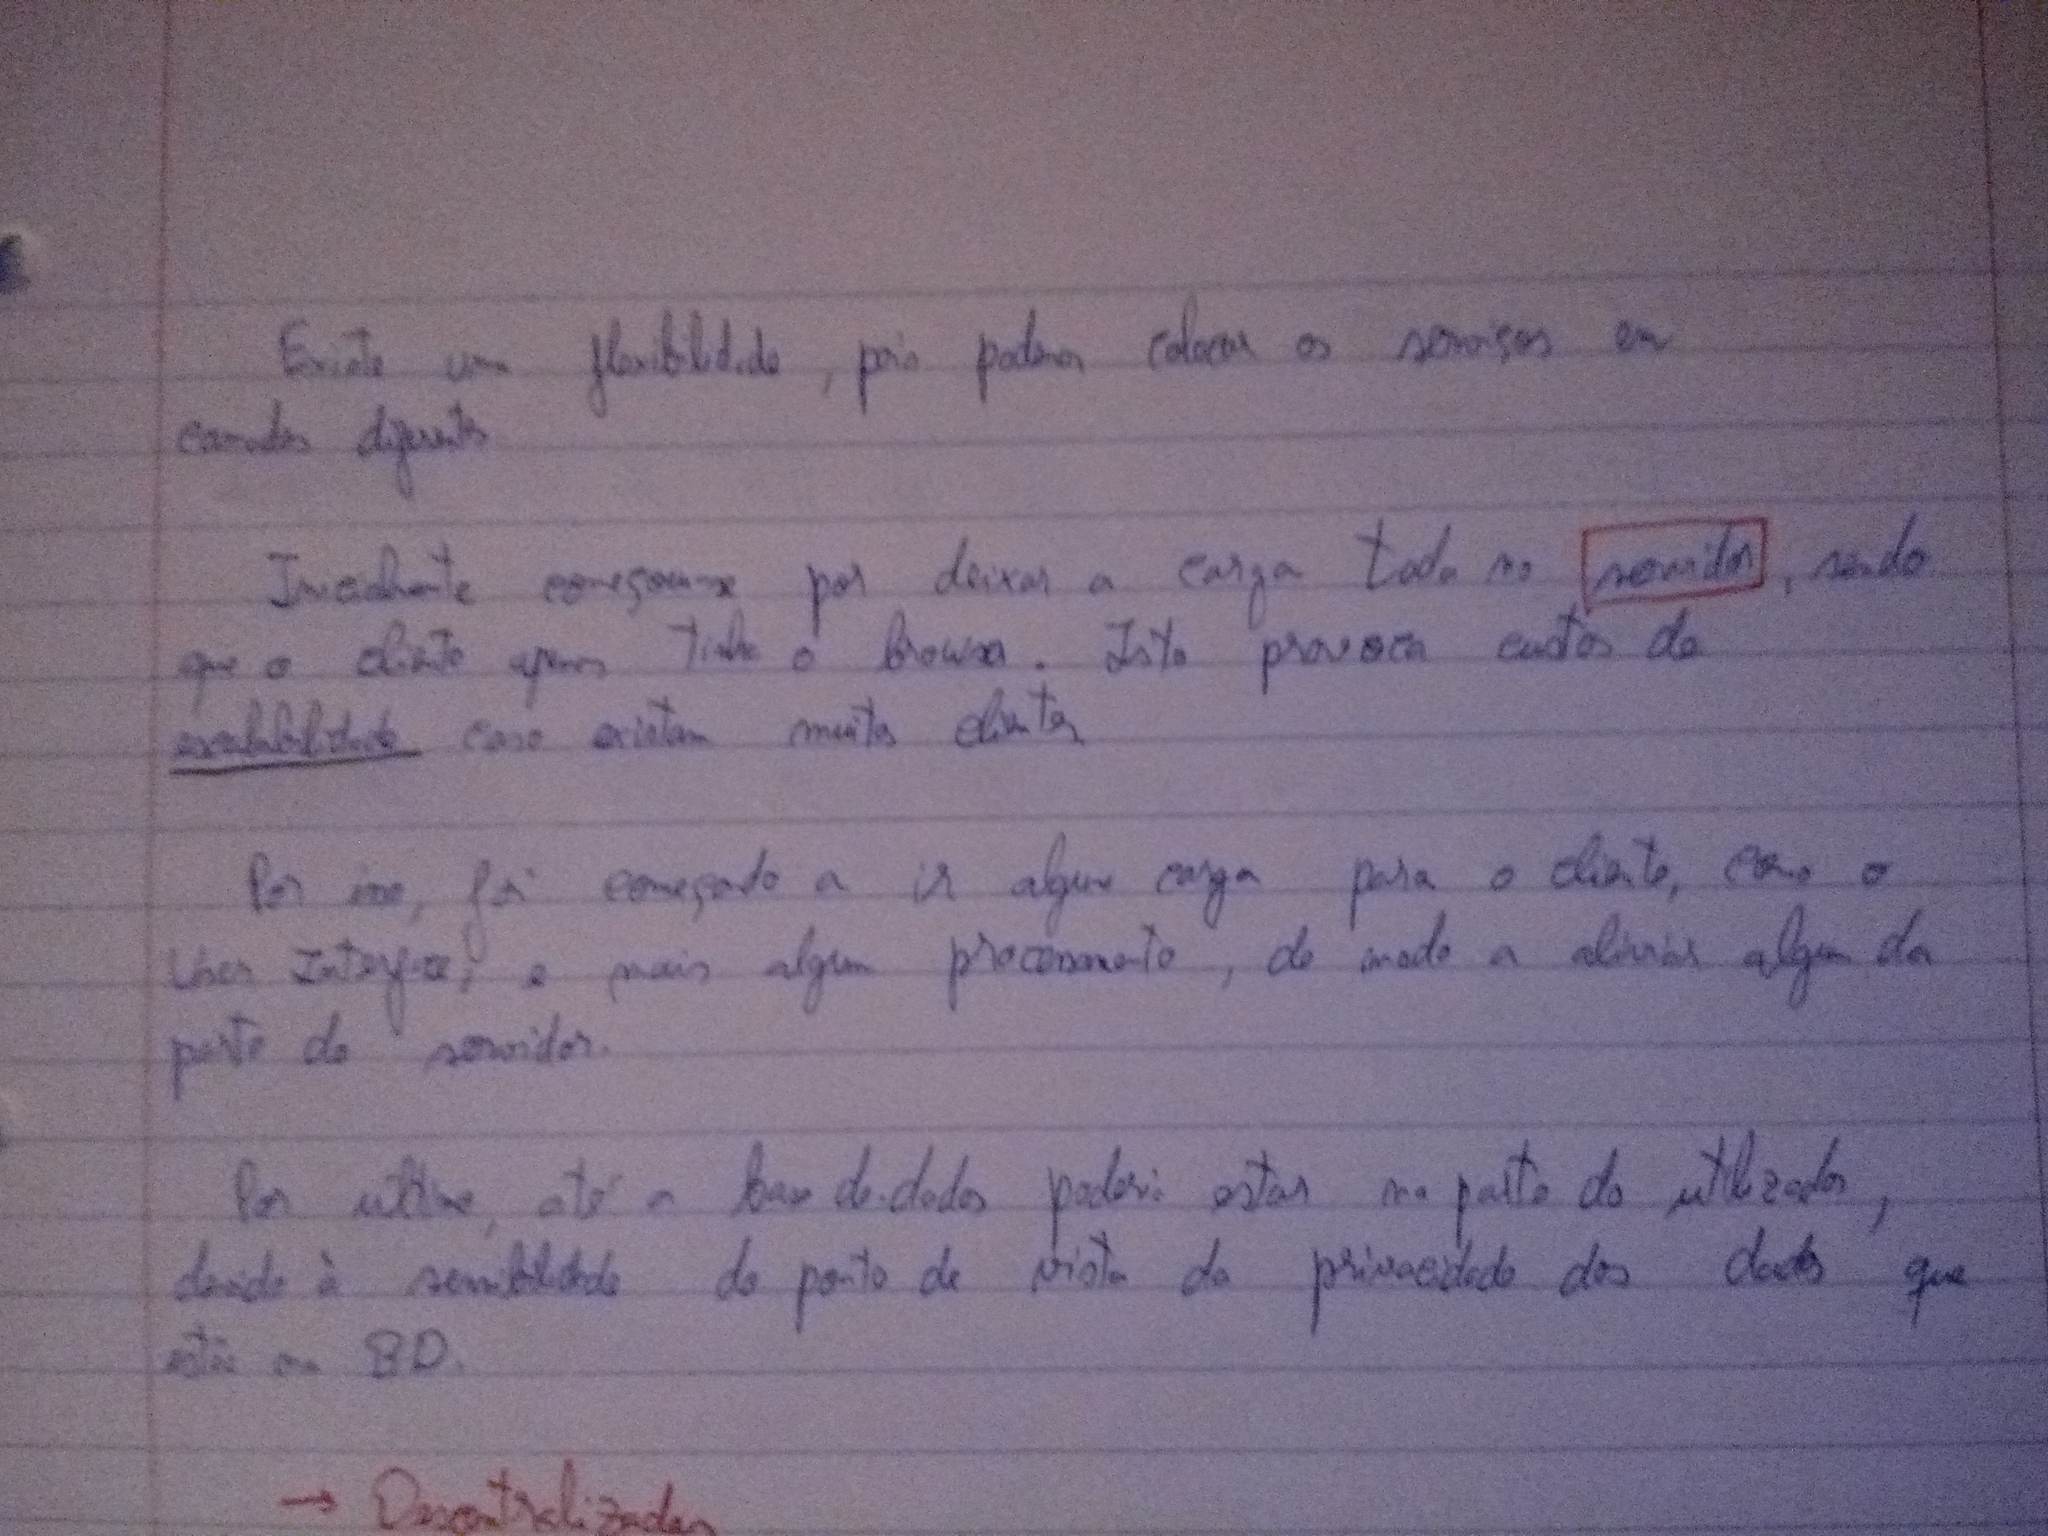 Existe uma flexibilidade, pois podemos colocar os serviços em
camadas diferentes
Inicialmente começou-se por deixar a carga toda no servidor, sendo
que o cliente apenas tinha o browser. Isto provoca custos de
escalabilidade caso existam muitos clientes
Por isso, foi começado a ir alguma carga para o cliente, como o
User Interface, e mais algum processamento, de modo a aliviar alguma da
parte do servidor.
Por ultimo, até a base de dados poderia estar na parte do utilizador,
devido à sensibilidade do ponto de vista da privacidade dos dados que
estão na BD.
→ Descentralizadas